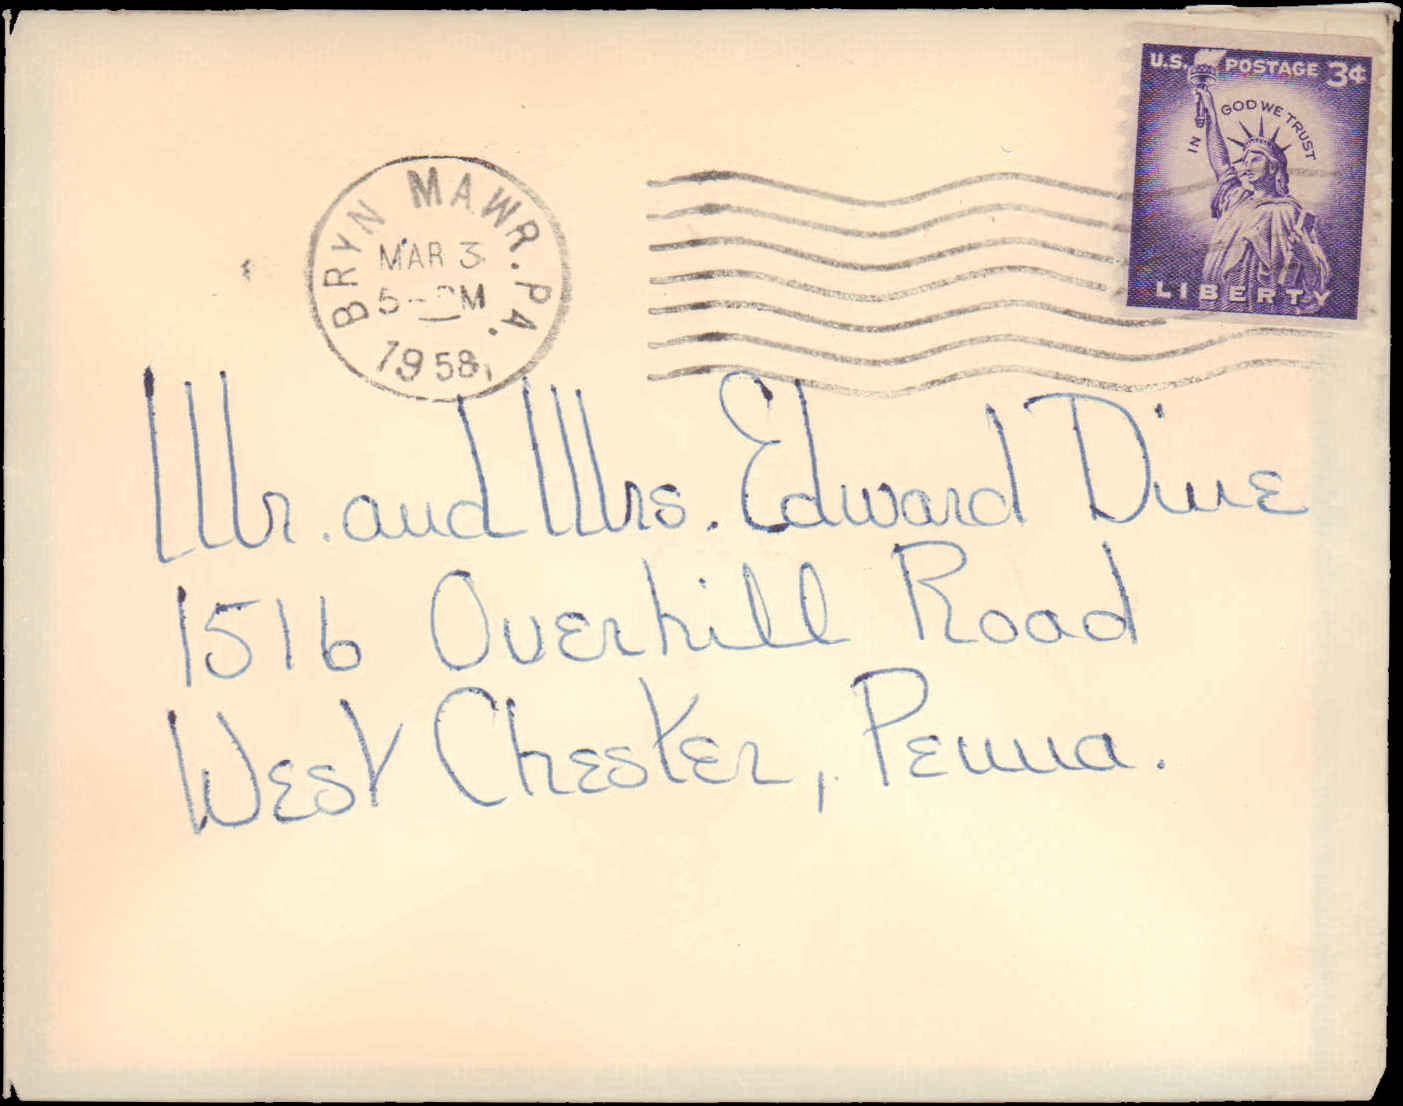 U.S. POSTAGE 3¢
IN GOD WE TRUST
LIBERTY
BRYN MAWR. PA.
MAR 3
5 - PM
1958
Mr. and Mrs. Edward Dine
1516 Overhill Road
West Chester, Penna.